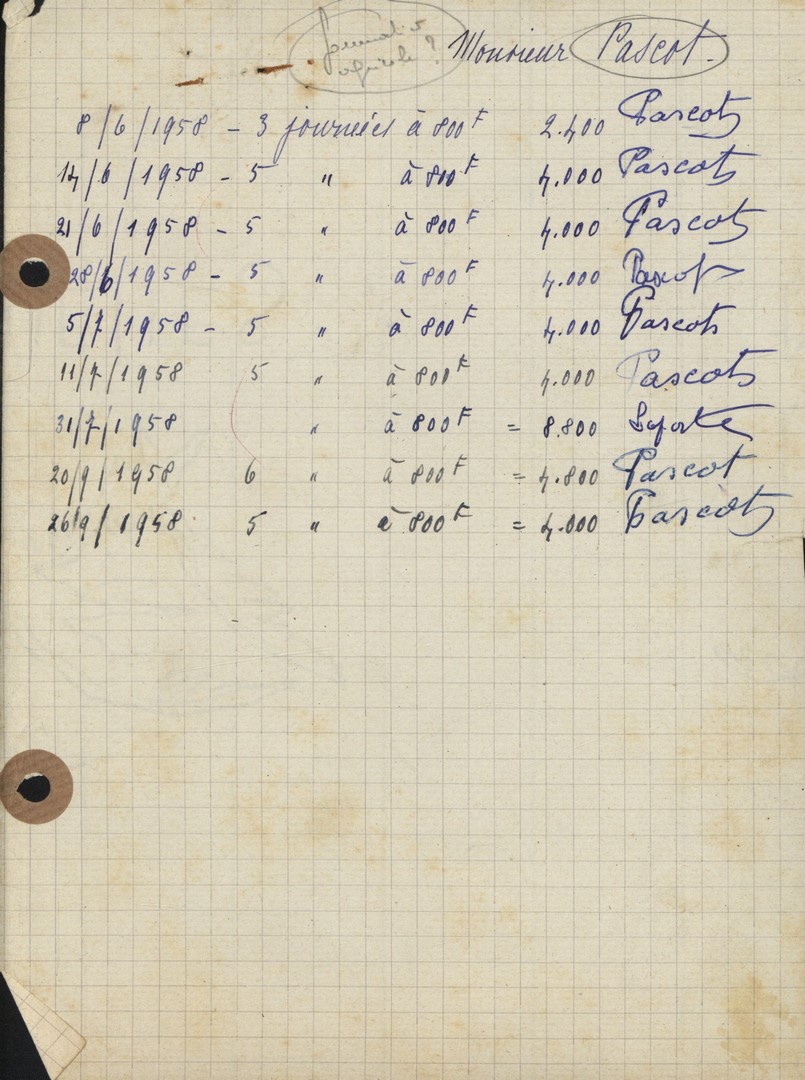 journalier
agricole ?
Monsieur Pascot.
8/6/1958 - 3 journées à 800 F 2.400 Pascot
14/6/1958 - 5 " à 800 F 4.000 Pascot
21/6/1958 - 5 " à 800 F 4.000 Pascot
28/6/1958 - 5 " à 800 F 4.000 Pascot
5/7/1958 - 5 " à 800 F 4.000 Pascot
11/7/1958 5 " à 800 F 4.000 Pascot
31/7/1958 " à 800 F = 8.800
20/9/1958 6 " à 800 F = 4.800 Pascot
26/9/1958 5 " à 800 F = 4.000 Pascot